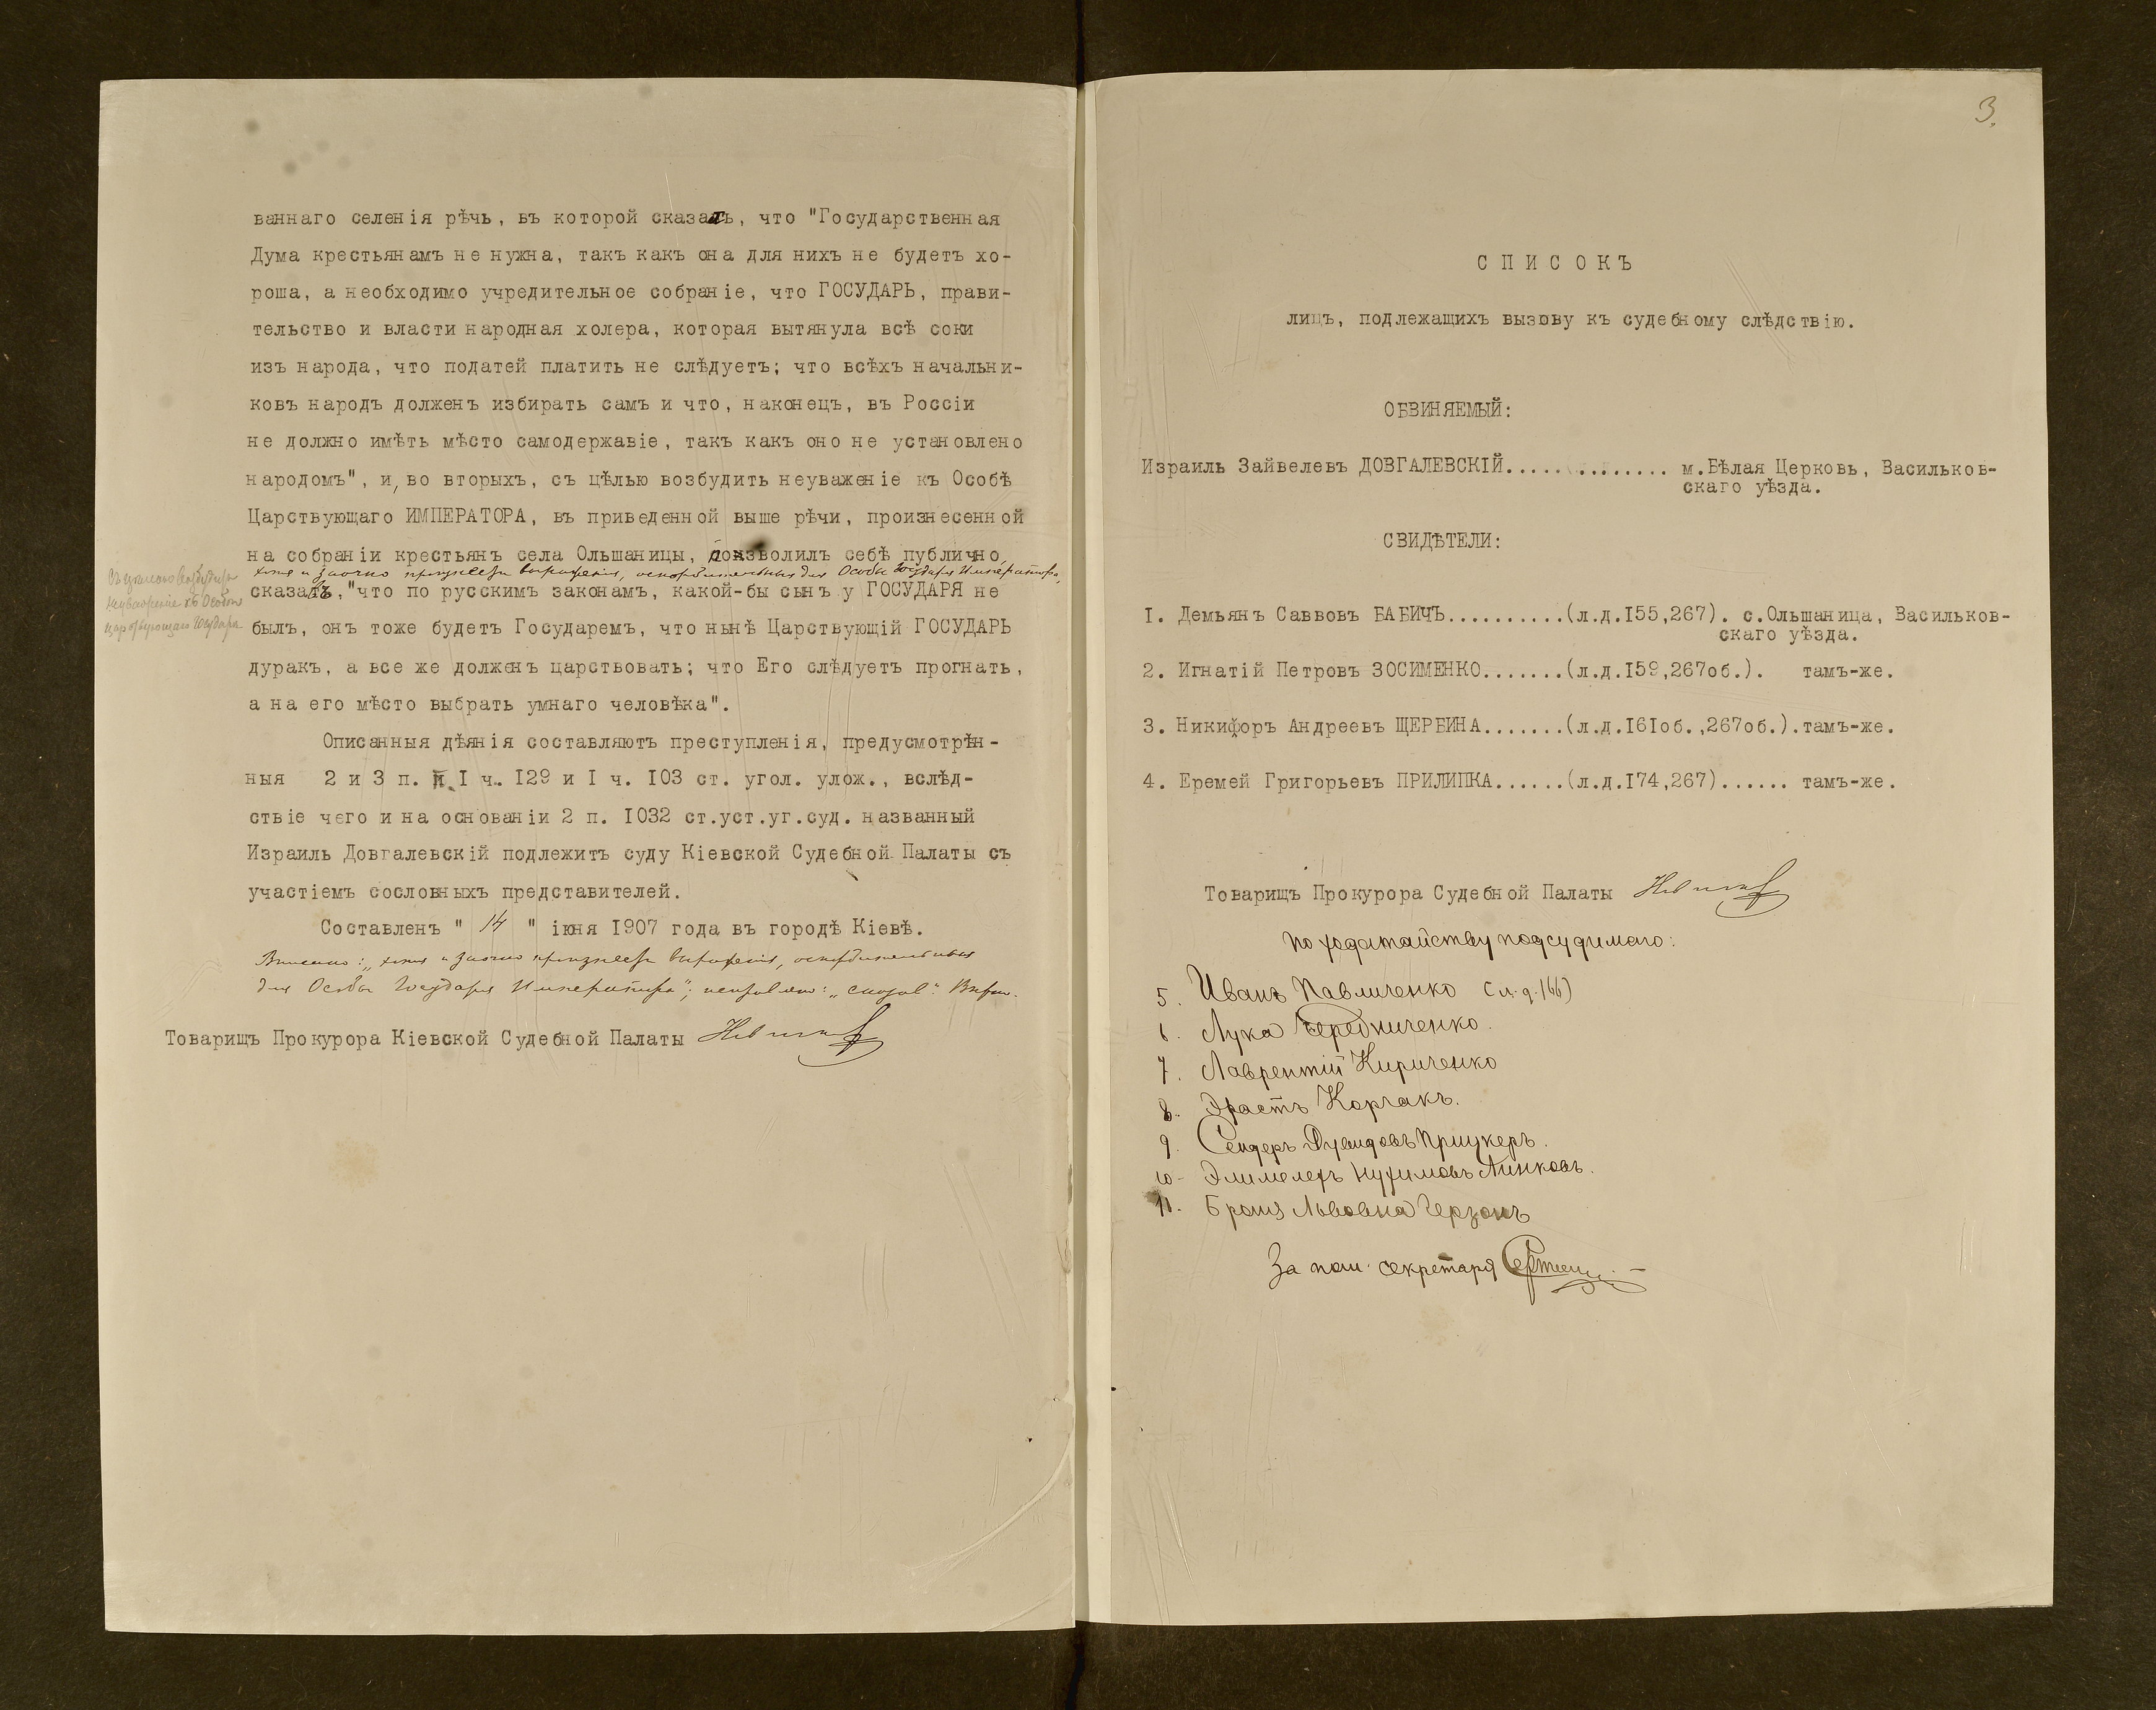 ваннаго селенія рѣчь, въ которой сказалъ, что "Государственная
Дума крестьянамъ не нужна, такъ какъ она для нихъ не будетъ хо-
роша, а необходимо учредительное собраніе, что ГОСУДАРЬ, прави-
тельство и власти народная холера, которая вытянула всѣ соки
изъ народа, что податей платить не слѣдуетъ; что всѣхъ начальни-
ковъ народъ долженъ избирать самъ и что, наконецъ, въ Россіи
не должно имѣть мѣсто самодержавіе, такъ какъ оно не установлено
народомъ", и, во вторыхъ, съ цѣлью возбудить неуваженіе къ Особѣ
Царствующаго ИМПЕРАТОРА, въ приведенной выше рѣчи, произнесенной
на собраніи крестьянъ села Ольшаницы, позволилъ себѣ публично,
хотя и заочно произнести выраженія, оскорбительныя для Особы Государя Императора,
съ цѣлью возбудить
неуваженіе къ Особѣ
Царствующаго Государя
сказавъ, "что по русскимъ законамъ, какой-бы сынъ у ГОСУДАРЯ не
былъ, онъ тоже будетъ Государемъ, что нынѣ Царствующій ГОСУДАРЬ
дуракъ, а все же долженъ царствовать; что Его слѣдуетъ прогнать,
а на его мѣсто выбрать умнаго человѣка".
Описанныя дѣянія составляютъ преступленія, предусмотрѣн-
ныя 2 и 3 п. I ч. 129 и I ч. 103 ст. угол. улож., вслѣд-
ствіе чего и на основаніи 2 п. 1032 ст.уст.уг.суд. названный
Израиль Довгалевскій подлежитъ суду Кіевской Судебной Палаты съ
участіемъ сословныхъ представителей.
Составленъ " 14 " іюня 1907 года въ городѣ Кіевѣ.
Вписано: "хотя и заочно произнести выраженія, оскорбительныя
для Особы Государя Императора"; исправлено: "сказав".
Товарищъ Прокурора Кіевской Судебной Палаты
3.
СПИСОКЪ
лицъ, подлежащихъ вызову къ судебному слѣдствію.
ОБВИНЯЕМЫЙ:
Израиль Зайвелевъ ДОВГАЛЕВСКІЙ.............. м.Бѣлая Церковь, Васильков-
скаго уѣзда.
СВИДѢТЕЛИ:
I. Демьянъ Саввовъ БАБИЧЪ..........(л.д.155,267). с.Ольшаница, Васильков-
скаго уѣзда.
2. Игнатій Петровъ ЗОСИМЕНКО.......(л.д.159,267об.). тамъ-же.
3. Никифоръ Андреевъ ЩЕРБИНА.......(л.д.161об.,267об.).тамъ-же.
4. Еремей Григорьевъ ПРИЛИПКА......(л.д.174,267)...... тамъ-же.
Товарищъ Прокурора Судебной Палаты
по ходатайству подсудимаго:
5. Иванъ Павличенко (л.д.166)
6. Лука Чередниченко.
7. Лаврентій Кириченко
8. Эрастъ Корчакъ.
9. Сендеръ Дувидовъ Прицкеръ.
10. Элимелехъ Нухимовъ Линковъ.
11. Броня Львовна Герзонъ
За пом. секретаря